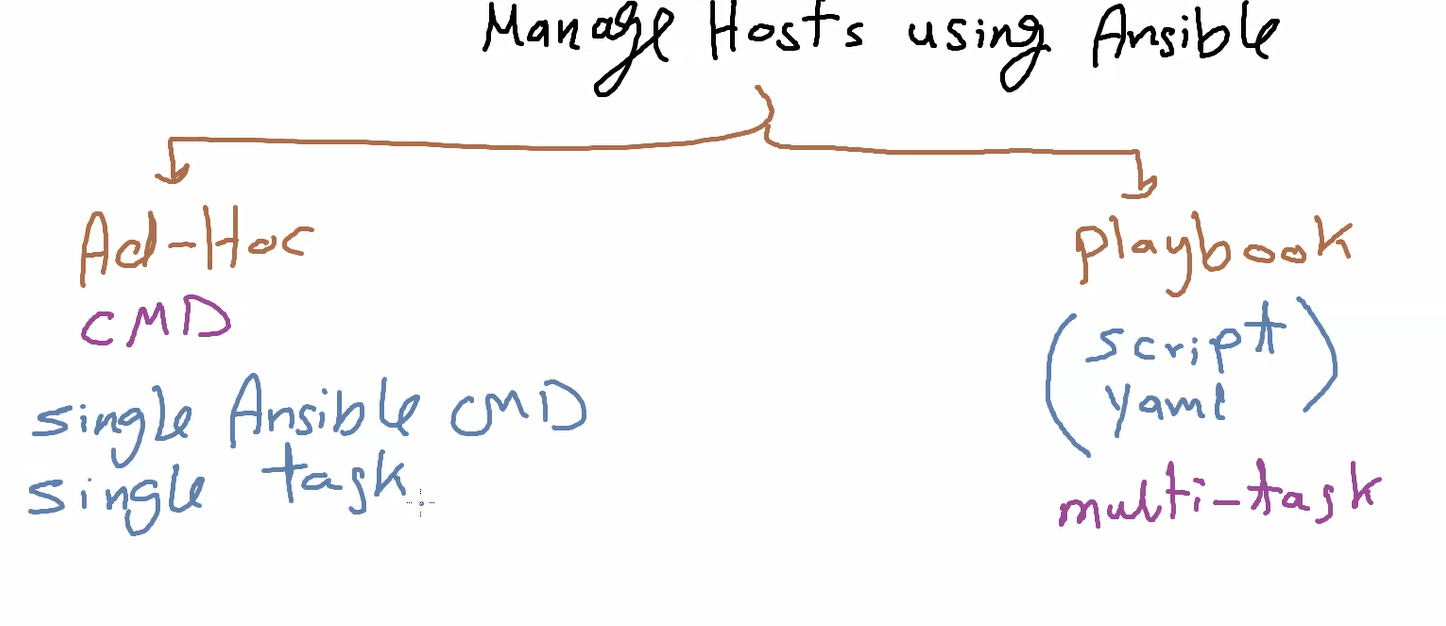 Manage Hosts using Ansible
Ad-Hoc
CMD
single Ansible CMD
single task
playbook
(script
yaml)
multi-task